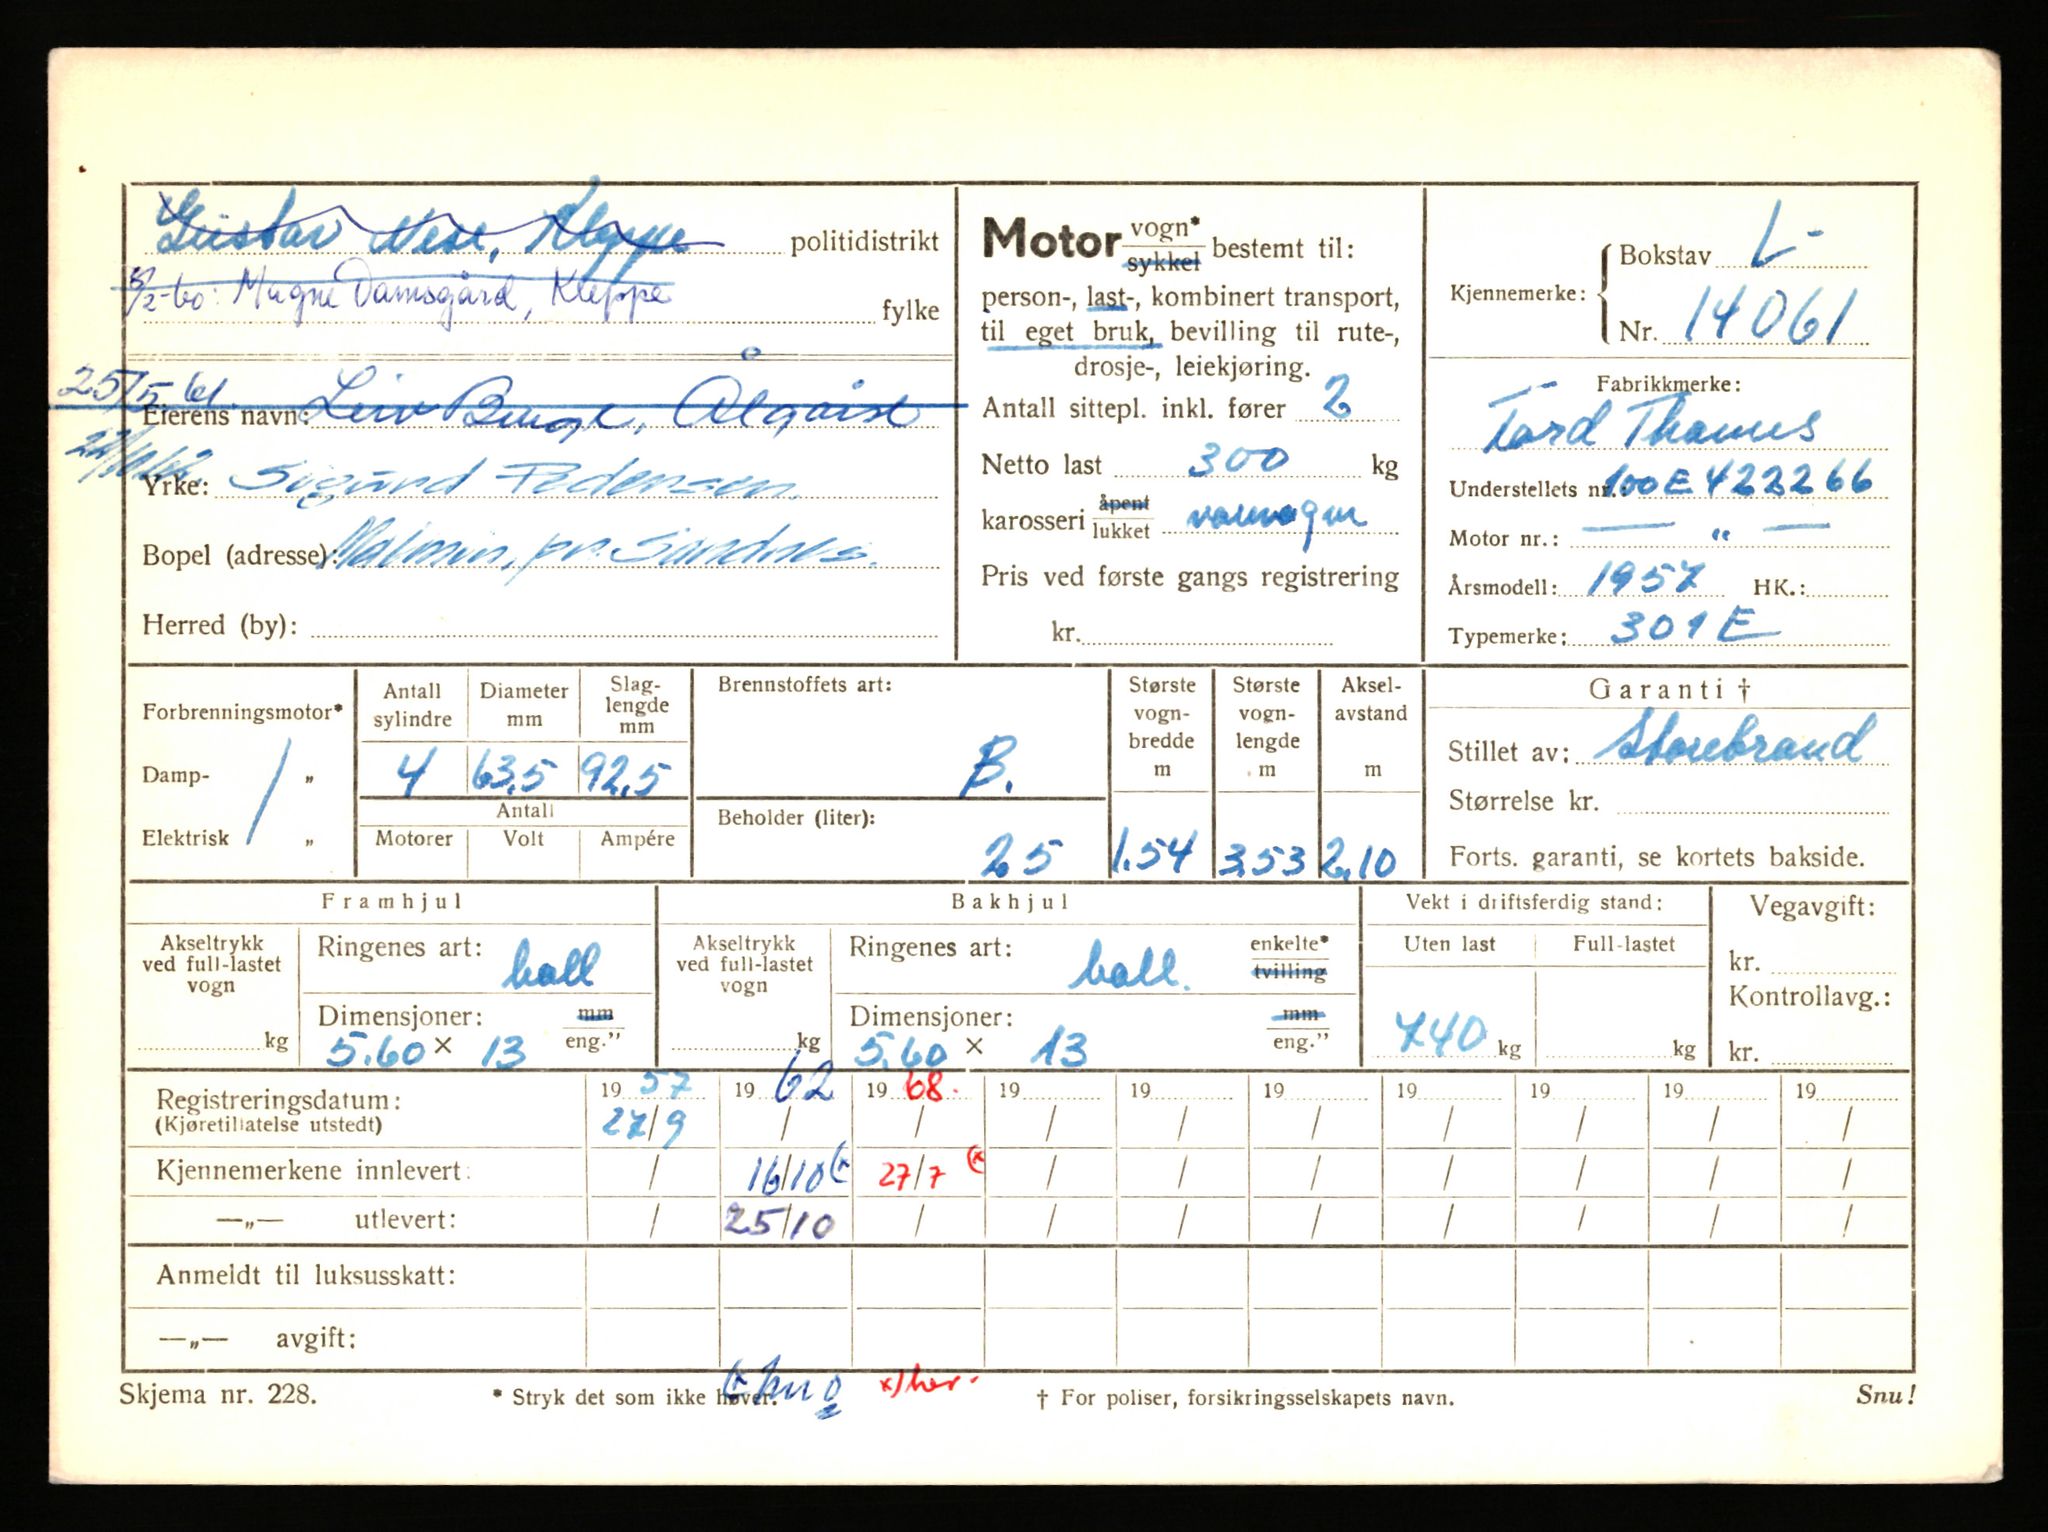 Gustav Nese, Kleppe politidistrikt
8/2-60: Magne Damsgård, Kleppe fylke
25/5 61
Eierens navn: Leiv Berge, Ålgård
Yrke: Sigurd Pedersen
Bopel (adresse): Malmin, pr. Sandnes.
Herred (by):
Motor vogn* sykkel bestemt til:
person-, last-, kombinert transport,
til eget bruk, bevilling til rute-,
drosje-, leiekjøring.
Antall sittepl. inkl. fører 2
Netto last 300 kg
karosseri åpent lukket varevogn
Pris ved første gangs registrering
kr.
Kjennemerke: Bokstav L-
Nr. 14061
Fabrikkmerke:
Ford Thames
Understellets nr.: 100E422266
Motor nr.: — " —
Årsmodell: 1957 HK.:
Typemerke: 301E
Forbrenningsmotor*
Damp- "
Elektrisk "
Antall sylindre 4
Diameter mm 63,5
Slaglengde mm 92,5
Antall
Motorer Volt Ampére
Brennstoffets art: B.
Beholder (liter): 25
Største vogn-bredde m 1.54
Største vogn-lengde m 3,53
Aksel-avstand m 2,10
Garanti †
Stillet av: Storebrand
Størrelse kr.
Forts. garanti, se kortets bakside.
Framhjul
Akseltrykk ved full-lastet vogn kg
Ringenes art: ball
Dimensjoner: mm eng."
5.60 x 13
Bakhjul
Akseltrykk ved full-lastet vogn kg
Ringenes art: ball. enkelte* tvilling
Dimensjoner: mm eng."
5.60 x 13
Vekt i driftsferdig stand:
Uten last 740 kg
Full-lastet kg
Vegavgift:
kr.
Kontrollavg.:
kr.
Registreringsdatum: 19 57 19 62 19 68. 19 19 19 19 19 19 19
(Kjøretillatelse utstedt) 27/9 / / / / / / / / /
Kjennemerkene innlevert: / 16/10 (x 27/7 (x / / / / / / /
—„— utlevert: / 25/10 / / / / / / / /
Anmeldt til luksusskatt:
—„— avgift:
Skjema nr. 228. * Stryk det som ikke høver. x) her. † For poliser, forsikringsselskapets navn. Snu!